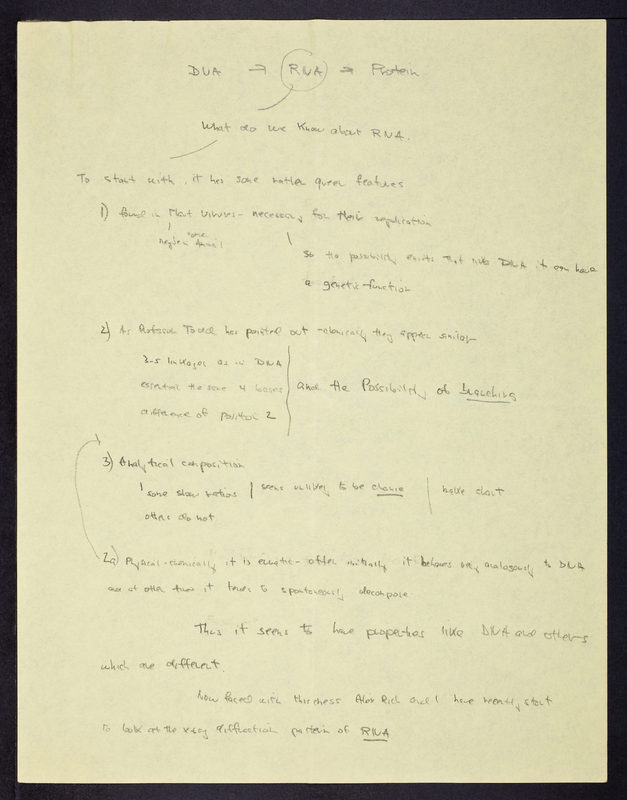 DNA → RNA → Protein
What do we know about RNA.
To start with, it has some rather queer features
1) found in Plant viruses - necessary for their replication
some Animal
so the possibility exists that like DNA it can have
a genetic function
2) As Professor Todd has pointed out - chemically they appear similar
3-5 linkages as in DNA
essential the same 4 bases
difference at position 2
and the Possibility of branching
3) Analytical composition
some show ratios
others do not
seems unlikely to be chance
make chart
2a) Physical-chemically it is erratic - often initially it behaves very analogously to DNA
and at other times it tends to spontaneously decompose
Thus it seems to have properties like DNA and others
which are different.
Now faced with this mess Alex Rich and I have recently start
to look at the x-ray diffraction pattern of RNA